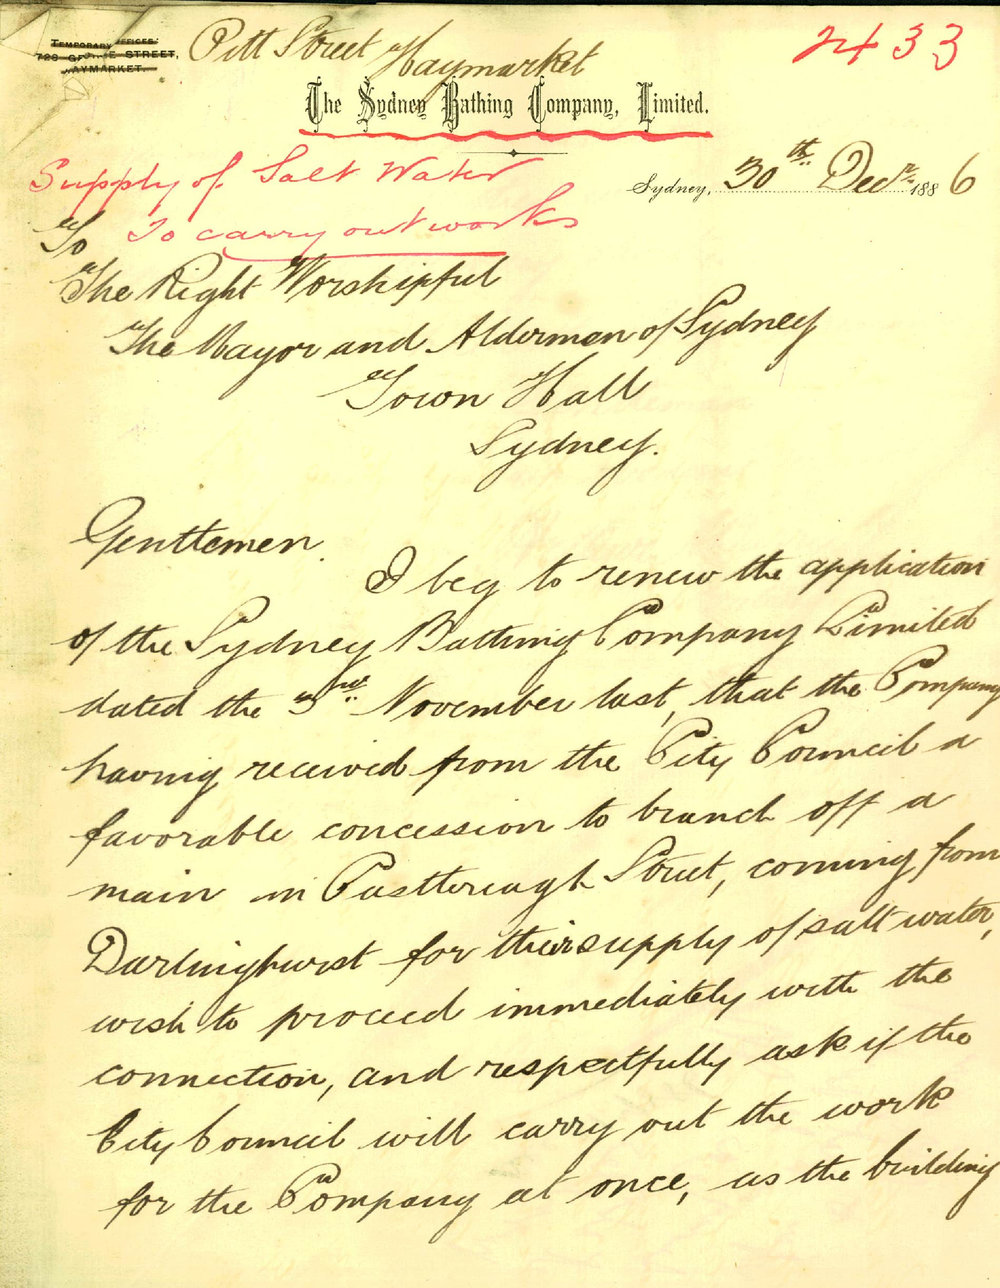 TEMPORARY OFFICES:
728 GEORGE STREET,
HAYMARKET.
Pitt Street Haymarket
2433
The Sydney Bathing Company, Limited.
Supply of Salt Water
To carry out works
Sydney, 30th Decr. 1886
To
The Right Worshipful
The Mayor and Aldermen of Sydney
Town Hall
Sydney.
Gentlemen.
I beg to renew the application
of the Sydney Bathing Company Limited
dated the 3rd November last, that the Company
having received from the City Council a
favorable concession to branch off a
main in Castlereagh Street, coming from
Darlinghurst for their supply of salt water,
wish to proceed immediately with the
connection, and respectfully ask if the
City Council will carry out the work
for the Company at once, as the building